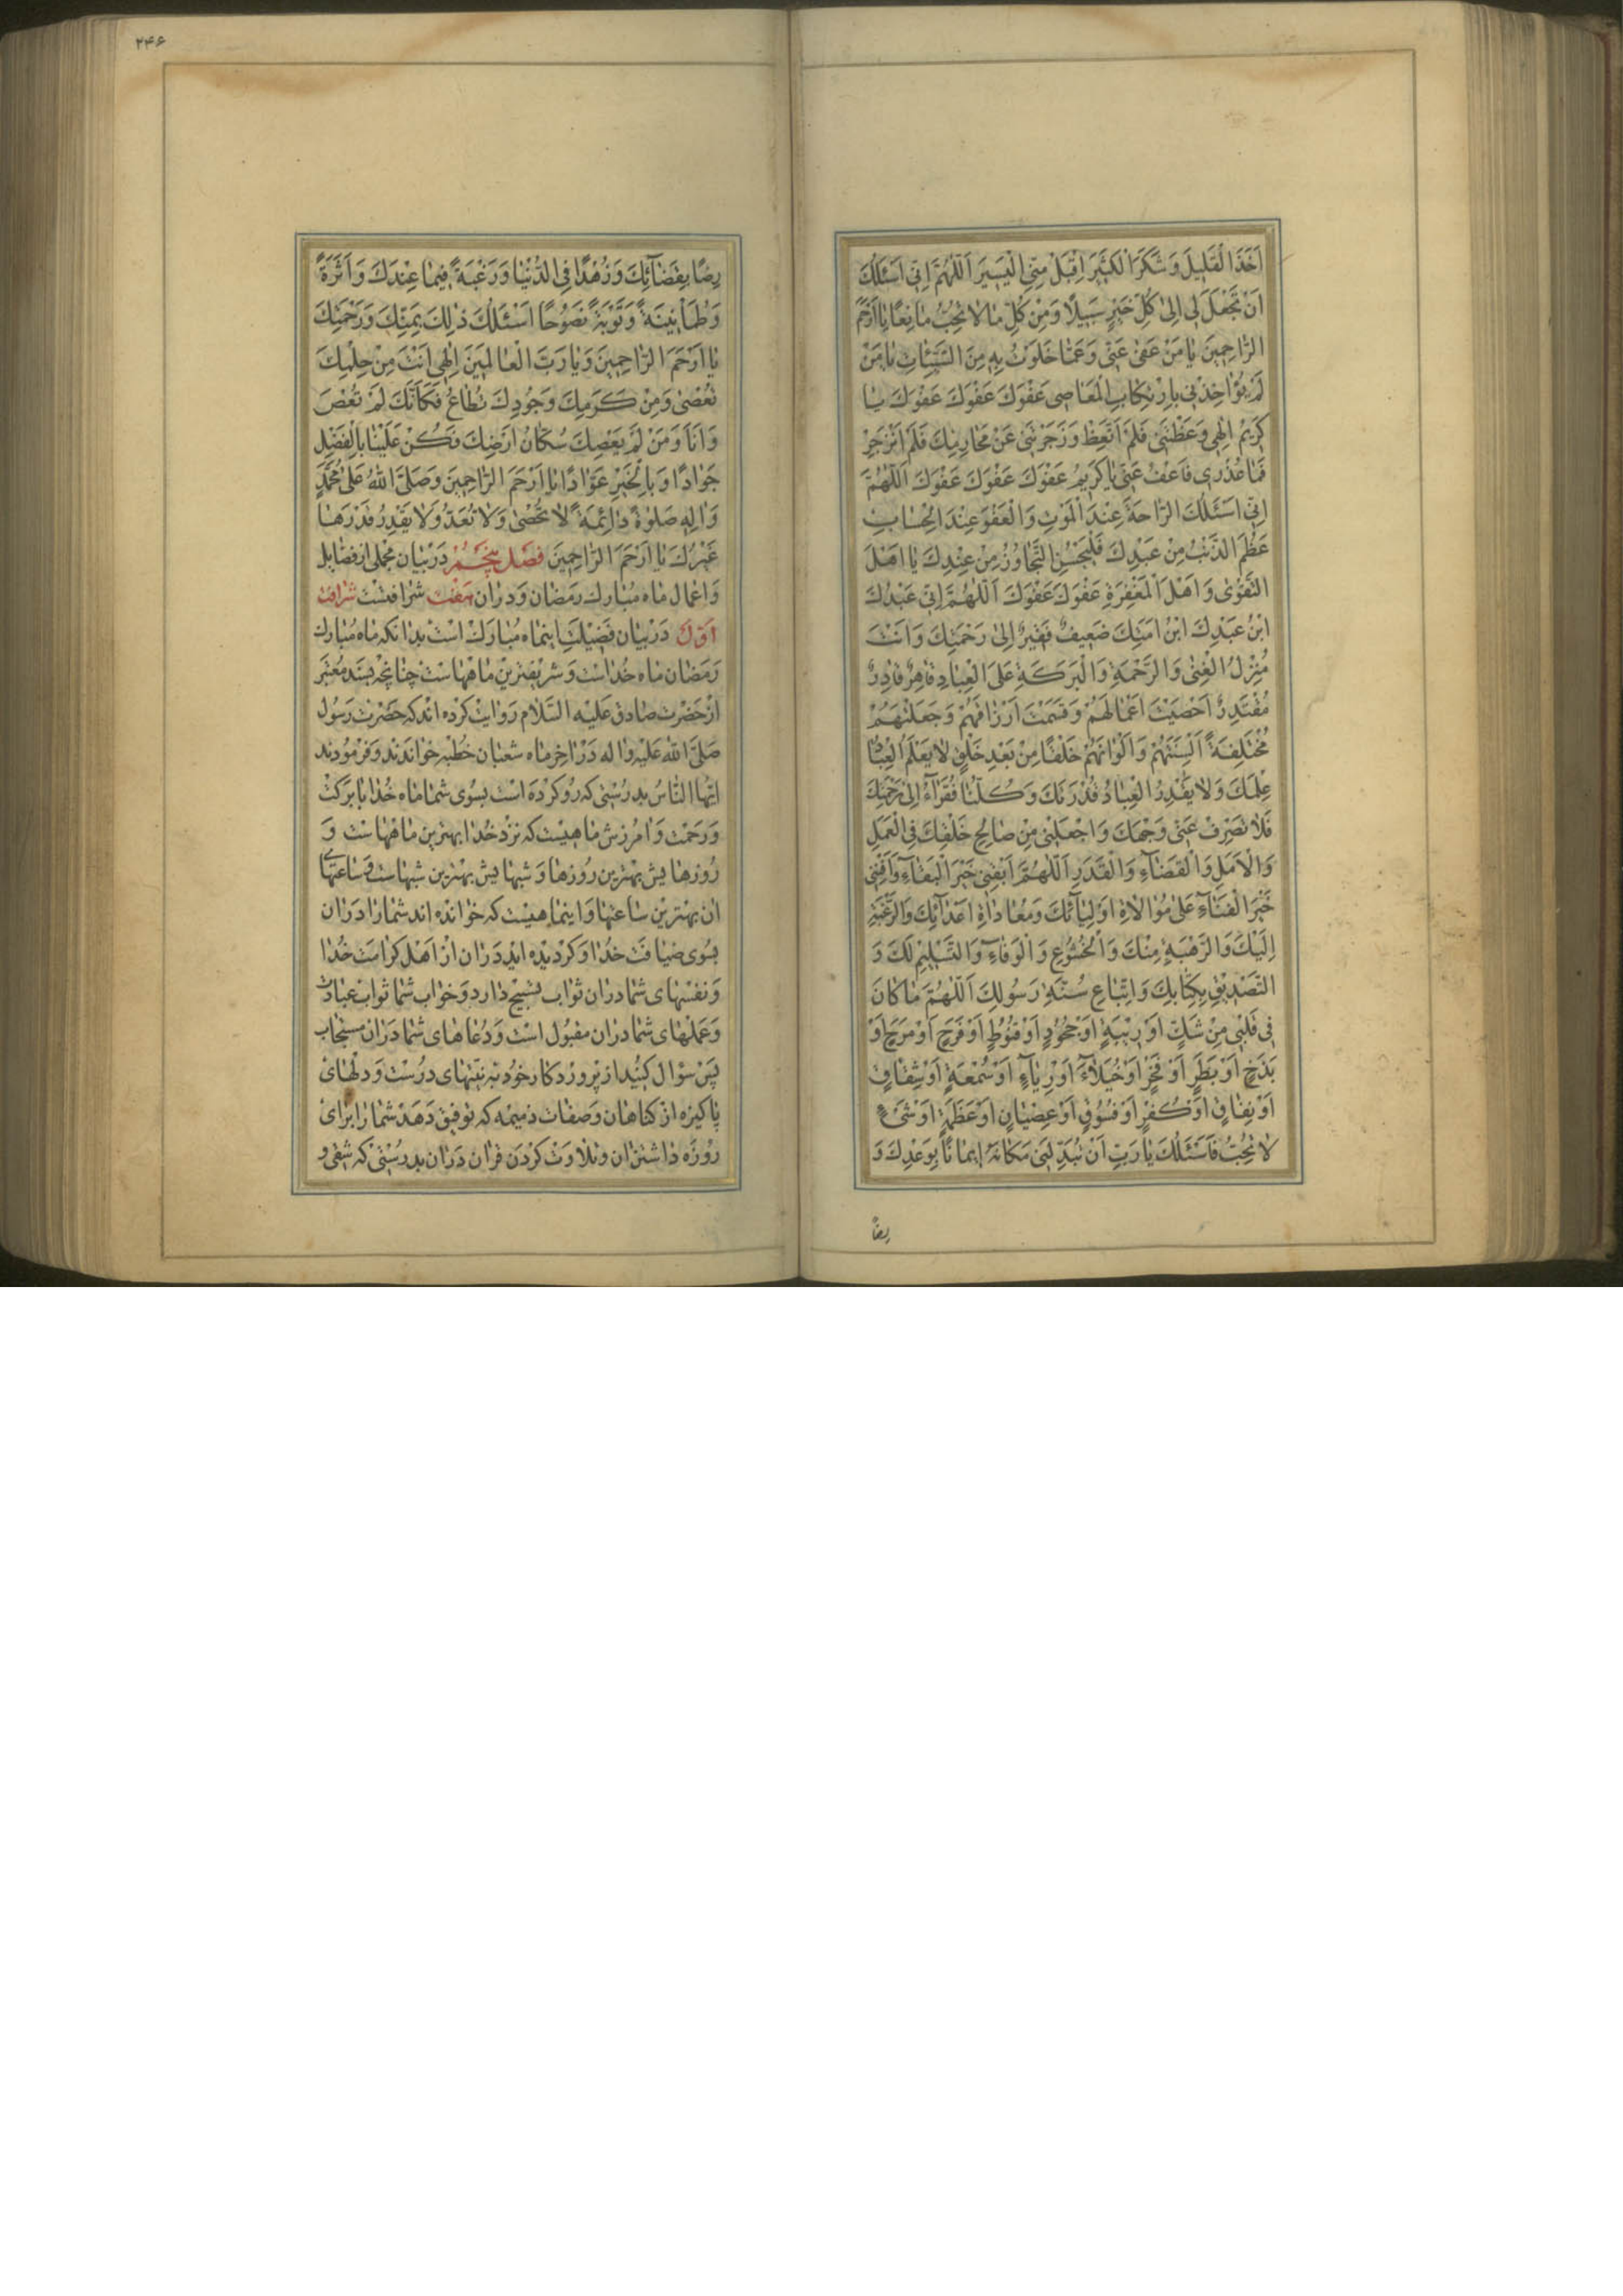 اَخَذَ الْقَلِيلَ وَشَكَرَ الْكَثِيرَ اِقْبَلْ مِنِّى الْيَسِيرَ اَللّٰهُمَّ اِنّى اَسْئَلُكَ
اَنْ تَجْعَلَ لى اِلىٰ كُلِّ خَيْرٍ سَبِيلًا وَمِنْ كُلِّ مٰا لاٰ تُحِبُّ مٰانِعًا يٰا اَرْحَمَ
الرّٰاحِمِينَ يٰا مَنْ عَفىٰ عَنّى وَعَمّٰا خَلَوْتُ بِهِ مِنَ السَّيِّئٰاتِ يٰا مَنْ
لَمْ يُؤٰاخِذْنى بِارْتِكٰابِ الْمَعٰاصى عَفْوَكَ عَفْوَكَ عَفْوَكَ يٰا
كَرِيمُ اِلٰهى وَعَظْتَنى فَلَمْ اَتَّعِظْ وَزَجَرْتَنى عَنْ مَحٰارِمِكَ فَلَمْ اَنْزَجِرْ
فَمٰا عُذْرى فَاعْفُ عَنّى يٰا كَرِيمُ عَفْوَكَ عَفْوَكَ عَفْوَكَ اَللّٰهُمَّ
اِنّى اَسْئَلُكَ الرّٰاحَةَ عِنْدَ الْمَوْتِ وَالْعَفْوَ عِنْدَ الْحِسٰابِ
عَظُمَ الذَّنْبُ مِنْ عَبْدِكَ فَلْيَحْسُنِ التَّجٰاوُزُ مِنْ عِنْدِكَ يٰا اَهْلَ
التَّقْوٰى وَاَهْلَ الْمَغْفِرَةِ عَفْوَكَ عَفْوَكَ اَللّٰهُمَّ اِنّى عَبْدُكَ
ابْنُ عَبْدِكَ ابْنُ اَمَتِكَ ضَعِيفٌ فَقِيرٌ اِلىٰ رَحْمَتِكَ وَاَنْتَ
مُنْزِلُ الْغِنىٰ وَالرَّحْمَةِ وَالْبَرَكَةِ عَلَى الْعِبٰادِ قٰاهِرٌ قٰادِرٌ
مُقْتَدِرٌ اَحْصَيْتَ اَعْمٰالَهُمْ وَقَسَمْتَ اَرْزٰاقَهُمْ وَجَعَلْتَهُمْ
مُخْتَلِفَةً اَلْسِنَتُهُمْ وَاَلْوٰانُهُمْ خَلْقًا مِنْ بَعْدِ خَلْقٍ لاٰ يَعْلَمُ الْعِبٰادُ
عِلْمَكَ وَلاٰ يَقْدِرُ الْعِبٰادُ قَدْرَكَ وَكُلُّنٰا فُقَرٰآءُ اِلىٰ رَحْمَتِكَ
فَلاٰ تَصْرِفْ عَنّى وَجْهَكَ وَاجْعَلْنى مِنْ صٰالِحِ خَلْقِكَ فِى الْعَمَلِ
وَالْاَمَلِ وَالْقَضٰآءِ وَالْقَدَرِ اَللّٰهُمَّ اَبْقِنى خَيْرَ الْبَقٰآءِ وَاَفْنِنى
خَيْرَ الْفَنٰآءِ عَلىٰ مُوٰالاٰةِ اَوْلِيٰآئِكَ وَمُعٰادٰاةِ اَعْدٰآئِكَ وَالرَّغْبَةِ
اِلَيْكَ وَالرَّهْبَةِ مِنْكَ وَالْخُشُوعِ وَالْوَفٰآءِ وَالتَّسْلِيمِ لَكَ وَ
التَّصْدِيقِ بِكِتٰابِكَ وَاتِّبٰاعِ سُنَّةِ رَسُولِكَ اَللّٰهُمَّ مٰا كٰانَ
فى قَلْبى مِنْ شَكٍّ اَوْ رِيبَةٍ اَوْ جُحُودٍ اَوْ قُنُوطٍ اَوْ فَرَحٍ اَوْ مَرَحٍ اَوْ
بَذَخٍ اَوْ بَطَرٍ اَوْ فَخْرٍ اَوْ خُيَلاٰءَ اَوْ رِيٰآءٍ اَوْ سُمْعَةٍ اَوْ شِقٰاقٍ
اَوْ نِفٰاقٍ اَوْ كُفْرٍ اَوْ فُسُوقٍ اَوْ عِصْيٰانٍ اَوْ عَظَمَةٍ اَوْ شَىْءٍ
لاٰ تُحِبُّ فَاَسْئَلُكَ يٰا رَبِّ اَنْ تُبَدِّلَنى مَكٰانَهُ اِيمٰانًا بِوَعْدِكَ وَ
رضًا
۲۴۶
رِضًا بِقَضٰآئِكَ وَزُهْدًا فِى الدُّنْيٰا وَرَغْبَةً فِيمٰا عِنْدَكَ وَاَثَرَةً
وَطُمَأْنِينَةً وَتَوْبَةً نَصُوحًا اَسْئَلُكَ ذٰلِكَ بِمَنِّكَ وَرَحْمَتِكَ
يٰا اَرْحَمَ الرّٰاحِمِينَ وَيٰا رَبَّ الْعٰالَمِينَ اِلٰهى اَنْتَ مِنْ حِلْمِكَ
تُعْصىٰ وَمِنْ كَرَمِكَ وَجُودِكَ تُطٰاعُ فَكَاَنَّكَ لَمْ تُعْصَ
وَاَنَا وَمَنْ لَمْ يَعْصِكَ سُكّٰانُ اَرْضِكَ فَكُنْ عَلَيْنٰا بِالْفَضْلِ
جَوٰادًا وَبِالْخَيْرِ عَوّٰادًا يٰا اَرْحَمَ الرّٰاحِمِينَ وَصَلَّى اللهُ عَلىٰ مُحَمَّدٍ
وَاٰلِهِ صَلوٰةً دٰائِمَةً لاٰ تُحْصىٰ وَلاٰ تُعَدُّ وَلاٰ يَقْدِرُ قَدْرَهٰا
غَيْرُكَ يٰا اَرْحَمَ الرّٰاحِمِينَ فصل پنجم در بيان مجملى از فضايل
و اعمال ماه مبارك رمضان و در ان هفت شرافتست شرافت
اوّل در بيان فضيلت اينماه مبارك است بدانكه ماه مبارك
رمضان ماه خداست و شريفترين ماههاست چنانچه بسند معتبر
از حضرت صادق عليه السّلام روايت كرده اند كه حضرت رسول
صلّى الله عليه واله در اخر ماه شعبان خطبه خواندند و فرمودند
ايّها النّاس بدرستى كه رو كرده است بسوى شما ماه خدا با بركت
و رحمت و امرزش ماهيست كه نزد خدا بهترين ماههاست و
روزهايش بهترين روزها و شبهايش بهترين شبهاست و ساعتهاى
ان بهترين ساعتها و اينماهيست كه خوانده اند شما را در ان
بسوى ضيافت خدا و كرديده ايد در ان از اهل كرامت خدا
و نفسهاى شما در ان ثواب تسبيح دارد و خواب شما ثواب عبادت
و عملهاى شما در ان مقبول است و دعاهاى شما در ان مستجاب
پس سؤال كنيد از پروردكار خود به نيّتهاى درست و دلهاى
پاكيزه از كناهان و صفات ذميمه كه توفيق دهد شما را براى
روزه داشتن ان و تلاوت كردن قران در ان بدرستى كه شقى و